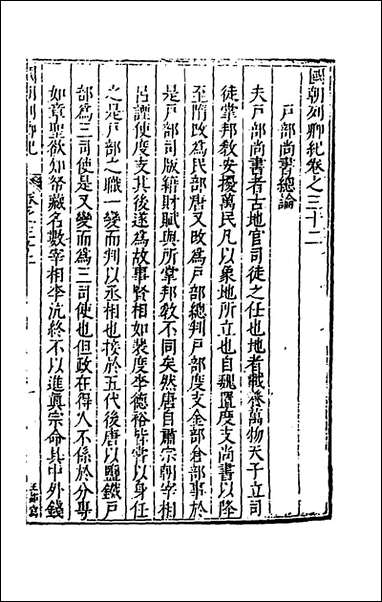 國朝列卿紀卷之三十二
戶部尚書總論
夫戶部尚書者古地官司徒之任也地者載養萬物天子立司
徒掌邦教安擾萬民凡以象地所立也自魏置度支尚書以降
至隋改為民部唐又改為戶部總判戶部度支金部倉部事於
是戶部司版籍財賦與所掌邦教不同矣然唐自肅宗朝宰相
呂諲使度支其後遂為故事賢相如裴度李德裕皆嘗以身任
之是戶部之職一變而判以丞相也接於五代後唐以鹽鐵戶
部為三司使是又變而為三司使也但政在得人不係於分專
如章聖欲知帑藏名數宰相李沆終不以進真宗命具中外錢
國朝列卿紀
卷之三十二
一